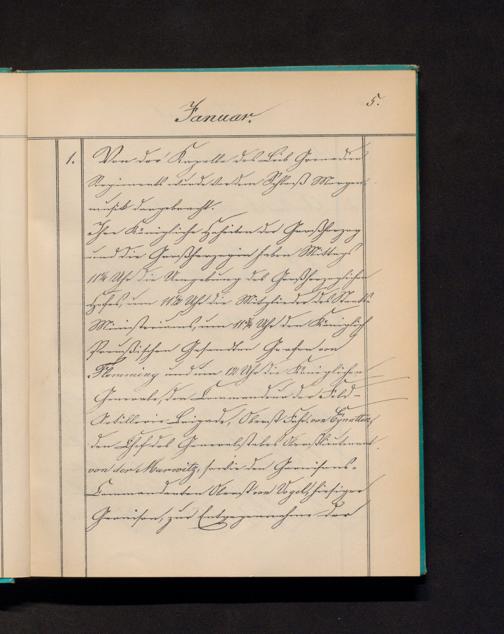 5.
Januar.
1. Von der Kapelle des Leib Grenadier
Regiments wurde vor dem Schloß Morgen-
musik dargebracht.
Ihre Königliche Hoheiten der Großherzog
und die Großherzogin haben Mittags
11¼ Uhr die Umgebung des Großherzoglichen
Hofes, um 11½ Uhr die Mitglieder des Staats-
Ministeriums, um 11¾ Uhr den Königlich
Preußischen Gesandten Grafen von
Flemming und um 12 Uhr die Königlichen
Generale, den Commandeur der Feld-
Artillerie Brigade, Oberst Frhr. von
den Chef des Generalstabes Oberstlieutenant
von der Marwitz, sowie den Garnisons-
Commandanten Oberst von hiesiger
Garnison, zur Entgegennahme der